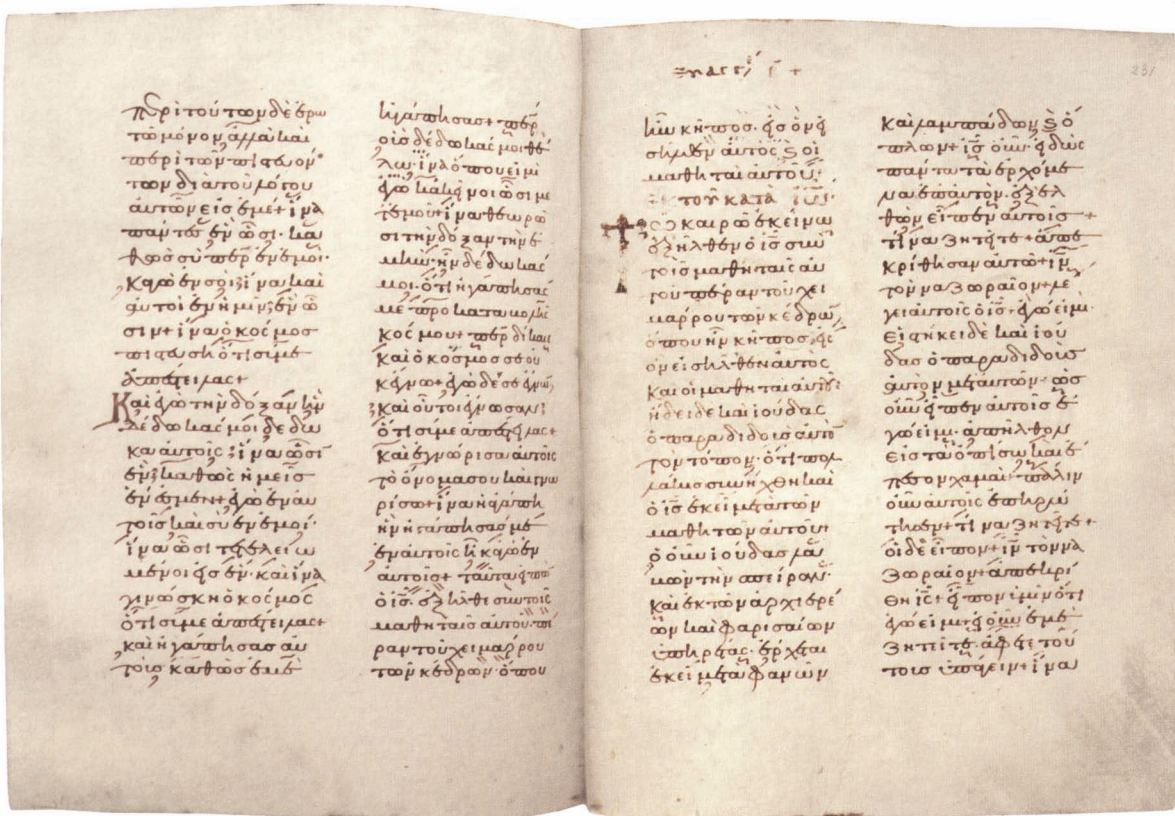 Περὶ τούτων δὲ ἐρω
τῶ μόνον ἀλλὰ καὶ
περὶ τῶν πιστευόν
των διὰ τοῦ λόγου
αὐτῶν εἰς ἐμέ+ ἵνα
πάντες ἓν ὦσι· κα
θὼς σὺ περ ἐν ἐμοί·
κἀγὼ ἐν σοί ἵνα καὶ
αὐτοὶ ἐν ἡμῖν ἓν ὦ
σιν+ ἵνα ὁ κόσμος
πιστεύση ὅτι σύ με
ἀπέστειλας+
Καὶ ἐγὼ τὴν δόξαν ἣν
δέδωκάς μοι δέδω
κα αὐτοῖς ἵνα ὦσι
ἓν καθὼς ἡμεῖς
ἕν ἐσμεν+ ἐγὼ ἐν αὐ
τοῖς καὶ σὺ ἐν ἐμοί·
ἵνα ὦσι τετελειω
μένοι εἰς ἕν· καὶ ἵνα
γινώσκη ὁ κόσμος
ὅτι σύ με ἀπέστειλας+
καὶ ἠγάπησας αὐ
τοὺς καθὼς ἐμὲ
ἠγάπησας+ περ
οὓς δέδωκάς μοι θέ
λω ἵνα ὅπου εἰμὶ
ἐγὼ κἀκεῖνοι ὦσι με
τ' ἐμοῦ+ ἵνα θεωρῶ
σι τὴν δόξαν τὴν ἐ
μὴν ἣν δέδωκάς
μοι· ὅτι ἠγάπησάς
με πρὸ καταβολῆς
κόσμου+ περ δίκαι
καὶ ὁ κόσμος σε οὐ
κ ἔγνω+ ἐγὼ δέ σε ἔγνων
καὶ οὗτοι ἔγνωσαν
ὅτι σύ με ἀπέστειλας+
καὶ ἐγνώρισα αὐτοῖς
τὸ ὄνομά σου καὶ γνω
ρίσω+ ἵνα ἡ ἀγάπη
ἣν ἠγάπησάς με
ἐν αὐτοῖς ἦ κἀγὼ ἐν
αὐτοῖς+ ταῦτα εἰπὼν
ὁ ις· ἐξῆλθε σὺν τοῖς
μαθηταῖς αὐτοῦ πέ
ραν τοῦ χειμάρρου
τῶν κέδρων· ὅπου
231
ἦν κῆπος· εἰς ὃν εἰ
σῆλθεν αὐτὸς καὶ οἱ
μαθηταὶ αὐτοῦ+
ἐκ τοῦ κατὰ ιω
Τῶ καιρῶ ἐκείνω
ἐξῆλθεν ὁ ις σὺν
τοῖς μαθηταῖς αὐ
τοῦ πέραν τοῦ χει
μάρρου τῶν κέδρων
ὅπου ἦν κῆπος εἰς
ὃν εἰσῆλθεν αὐτὸς
καὶ οἱ μαθηταὶ αὐτοῦ
ἤδει δὲ καὶ ἰούδας
ὁ παραδιδοὺς αὐτὸν
τὸν τόπον· ὅτι πολ
λάκις συνήχθη καὶ
ὁ ις ἐκεῖ μετὰ τῶν
μαθητῶν αὐτοῦ+
ὁ οὖν ἰούδας λα
βὼν τὴν σπεῖραν·
καὶ ἐκ τῶν ἀρχιερέ
ων καὶ φαρισαίων
ὑπηρέτας· ἔρχεται
ἐκεῖ μετὰ φανῶν
καὶ λαμπάδων καὶ ὅ
πλων+ ις οὖν· εἰδὼς
πάντα τὰ ἐρχόμε
να ἐπ' αὐτὸν· ἐξελ
θὼν εἶπεν αὐτοῖς+
τίνα ζητεῖτε+ ἀπε
κρίθησαν αὐτῶ+ ιν
τὸν ναζωραῖον+ λέ
γει αὐτοῖς ὁ ις+ ἐγώ εἰμι·
εἱστήκει δὲ καὶ ἰού
δας ὁ παραδιδοὺς
αὐτὸν μετ' αὐτῶν· ὡς
οὖν εἶπεν αὐτοῖς ἐ
γώ εἰμι· ἀπῆλθον
εἰς τὰ ὀπίσω καὶ ἔ
πεσον χαμαί· πάλιν
οὖν αὐτοὺς ἐπηρώ
τησεν+ τίνα ζητεῖτε+
οἱ δὲ εἶπον+ ιν τὸν να
ζωραῖον+ ἀπεκρί
θη ις+ εἶπον ὑμῖν ὅτι
ἐγώ εἰμι+ εἰ οὖν ἐμὲ
ζητεῖτε· ἄφετε τού
τους ὑπάγειν+ ἵνα